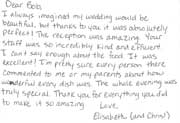 Dear Bob,
I always imagined my wedding would be
beautiful, but thanks to you it was absolutely
perfect! The reception was amazing. Your
staff was so incredibly kind and efficient.
I can't say enough about the food. It was
excellent! I'm pretty sure every person there
commented to me or my parents about how
wonderful every dish was. The whole evening was
truly special. Thank you for everything you did
to make it so amazing.
Love,
Elisabeth (and Chris!)